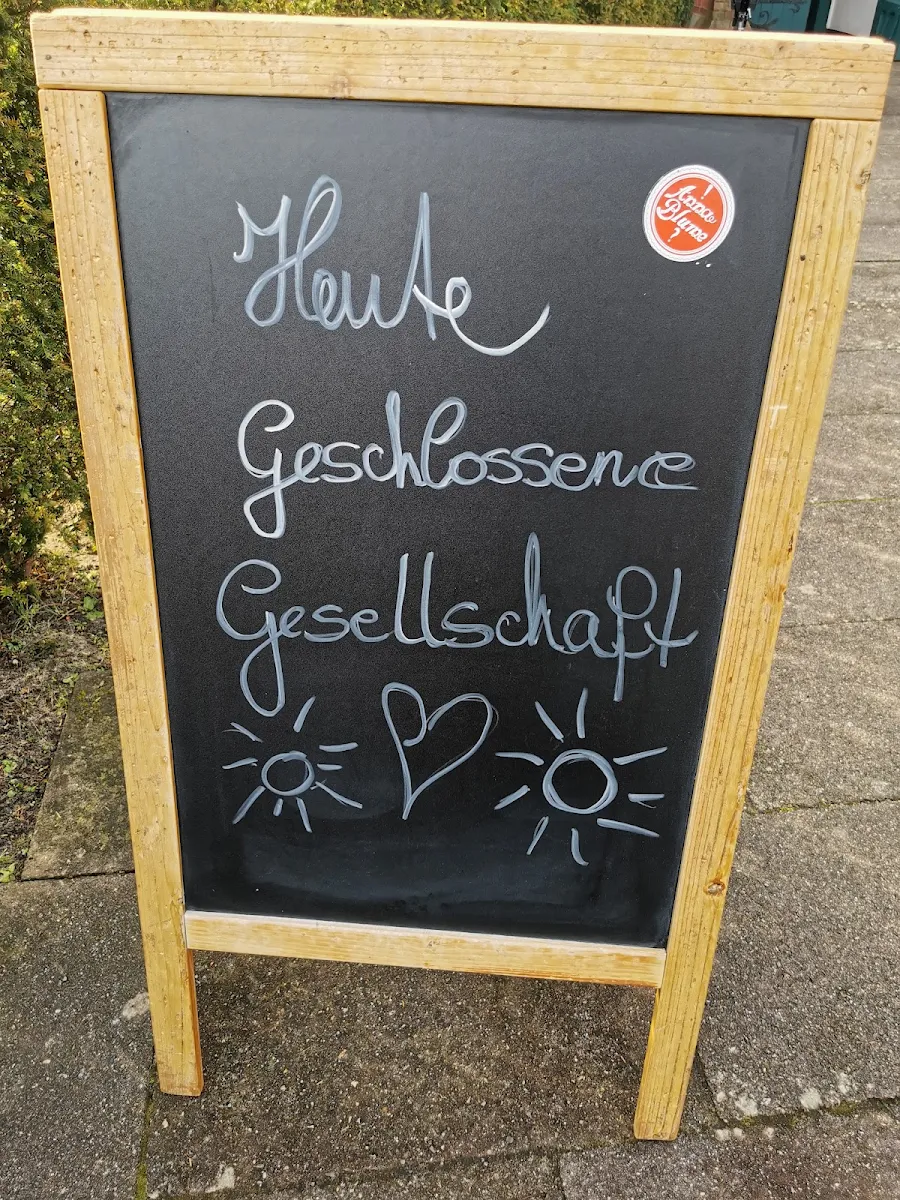 Heute
Geschlossene
Gesellschaft
!
Anna
Blume
?